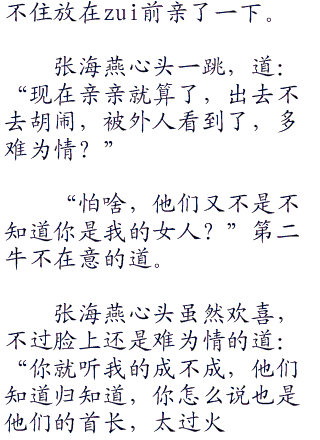 不住放在zui前亲了一下。
张海燕心头一跳，道：
“现在亲亲就算了，出去不
去胡闹，被外人看到了，多
难为情？”
“怕啥，他们又不是不
知道你是我的女人？”第二
牛不在意的道。
张海燕心头虽然欢喜，
不过脸上还是难为情的道：
“你就听我的成不成，他们
知道归知道，你怎么说也是
他们的首长，太过火